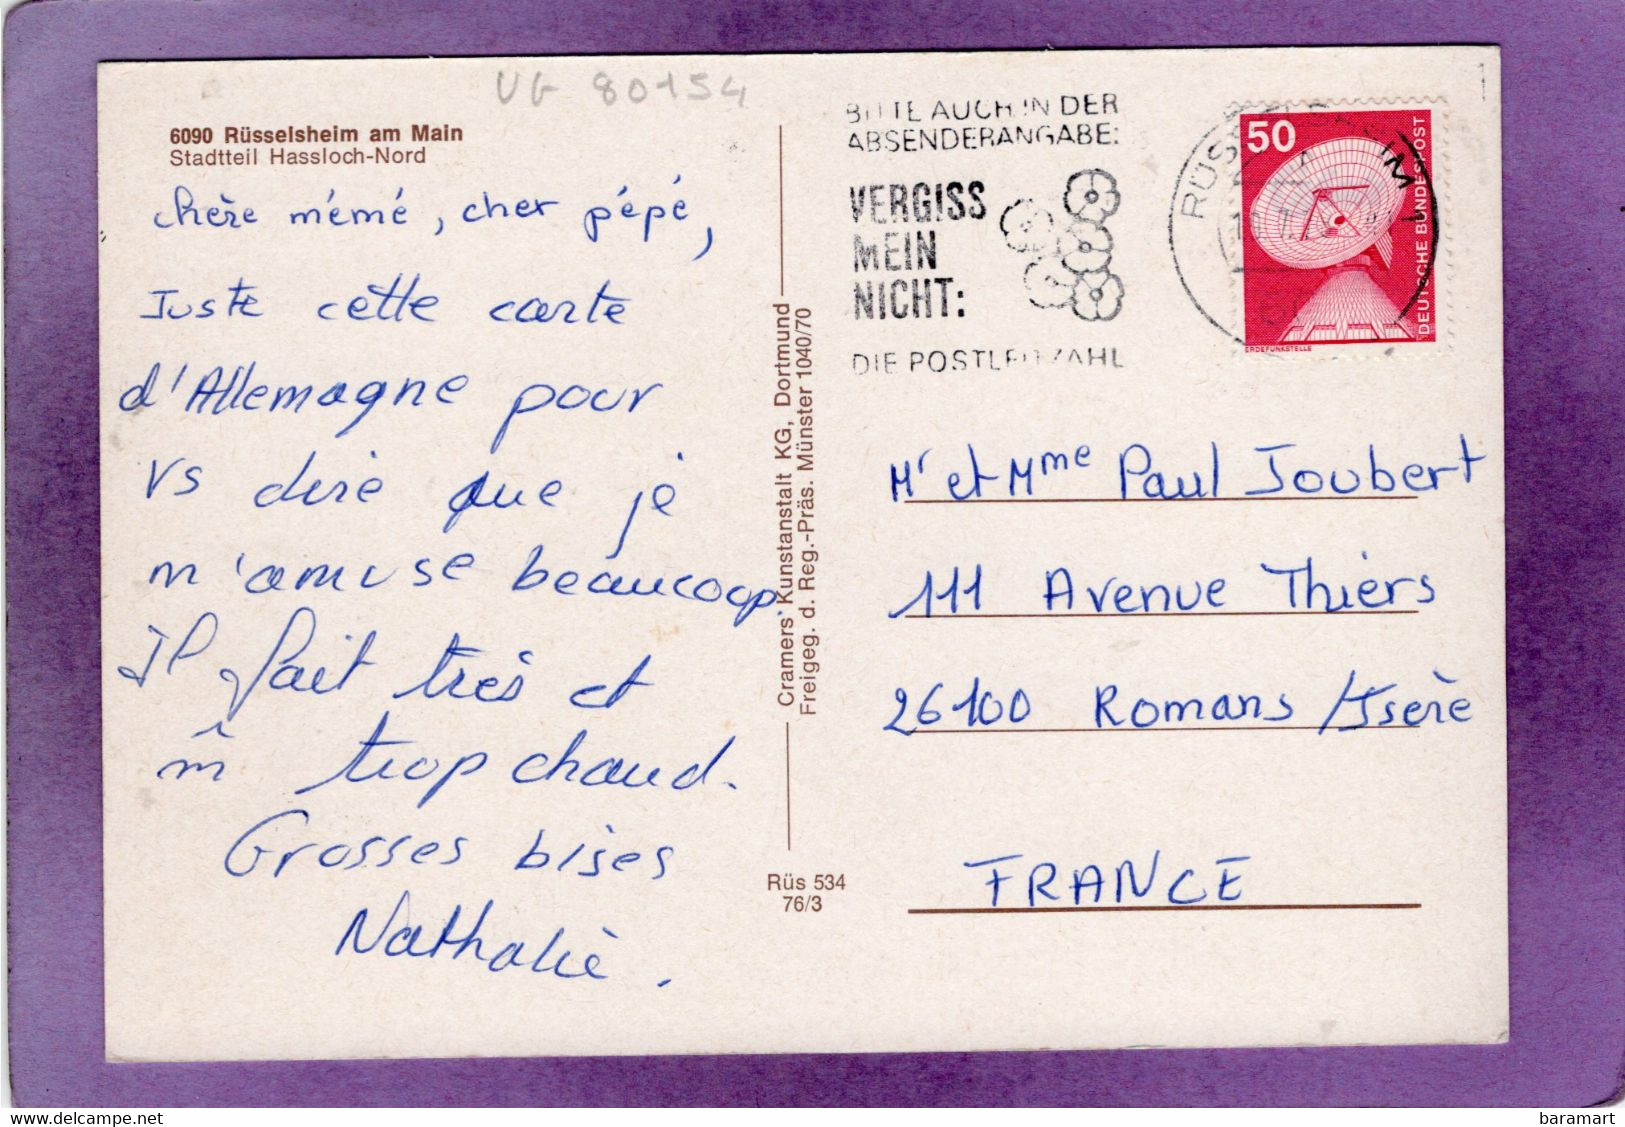 UG 80154
6090 Rüsselsheim am Main
Stadtteil Hassloch-Nord
chère mémé, cher pépé,
Juste cette carte
d'Allemagne pour
vs dire que je
m'amuse beaucoup.
Il fait très et
m̂ trop chaud.
Grosses bises
Nathalie.
Cramers Kunstanstalt KG, Dortmund
Freigeg. d. Reg.-Präs. Münster 1040/70
Rüs 534
76/3
BITTE AUCH IN DER
ABSENDERANGABE:
VERGISS
MEIN
NICHT:
DIE POSTLEITZAHL
RÜSSELSHEIM
50
DEUTSCHE BUNDESPOST
ERDEFUNKSTELLE
Mr et Mme Paul Joubert
111 Avenue Thiers
26100 Romans /Isère
FRANCE
delcampe.net
baramart